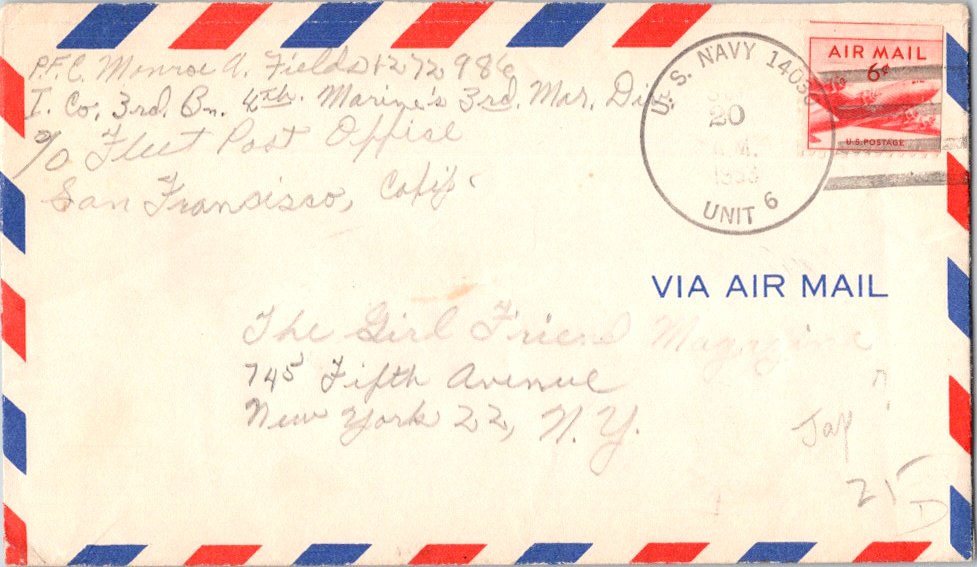 P.F.C. Monroe A. Fields 1272986
I. Co. 3rd. Bn. 4th. Marine's 3rd. Mar. Di
c/o Fleet Post Offise
San Fransisso, Calif.
U. S. NAVY 14038
20
M.
1953
UNIT 6
AIR MAIL
6¢
U.S. POSTAGE
VIA AIR MAIL
The Girl Friend Magazine
745 Fifth Avenue
New York 22, N.Y.
Jap
215
D